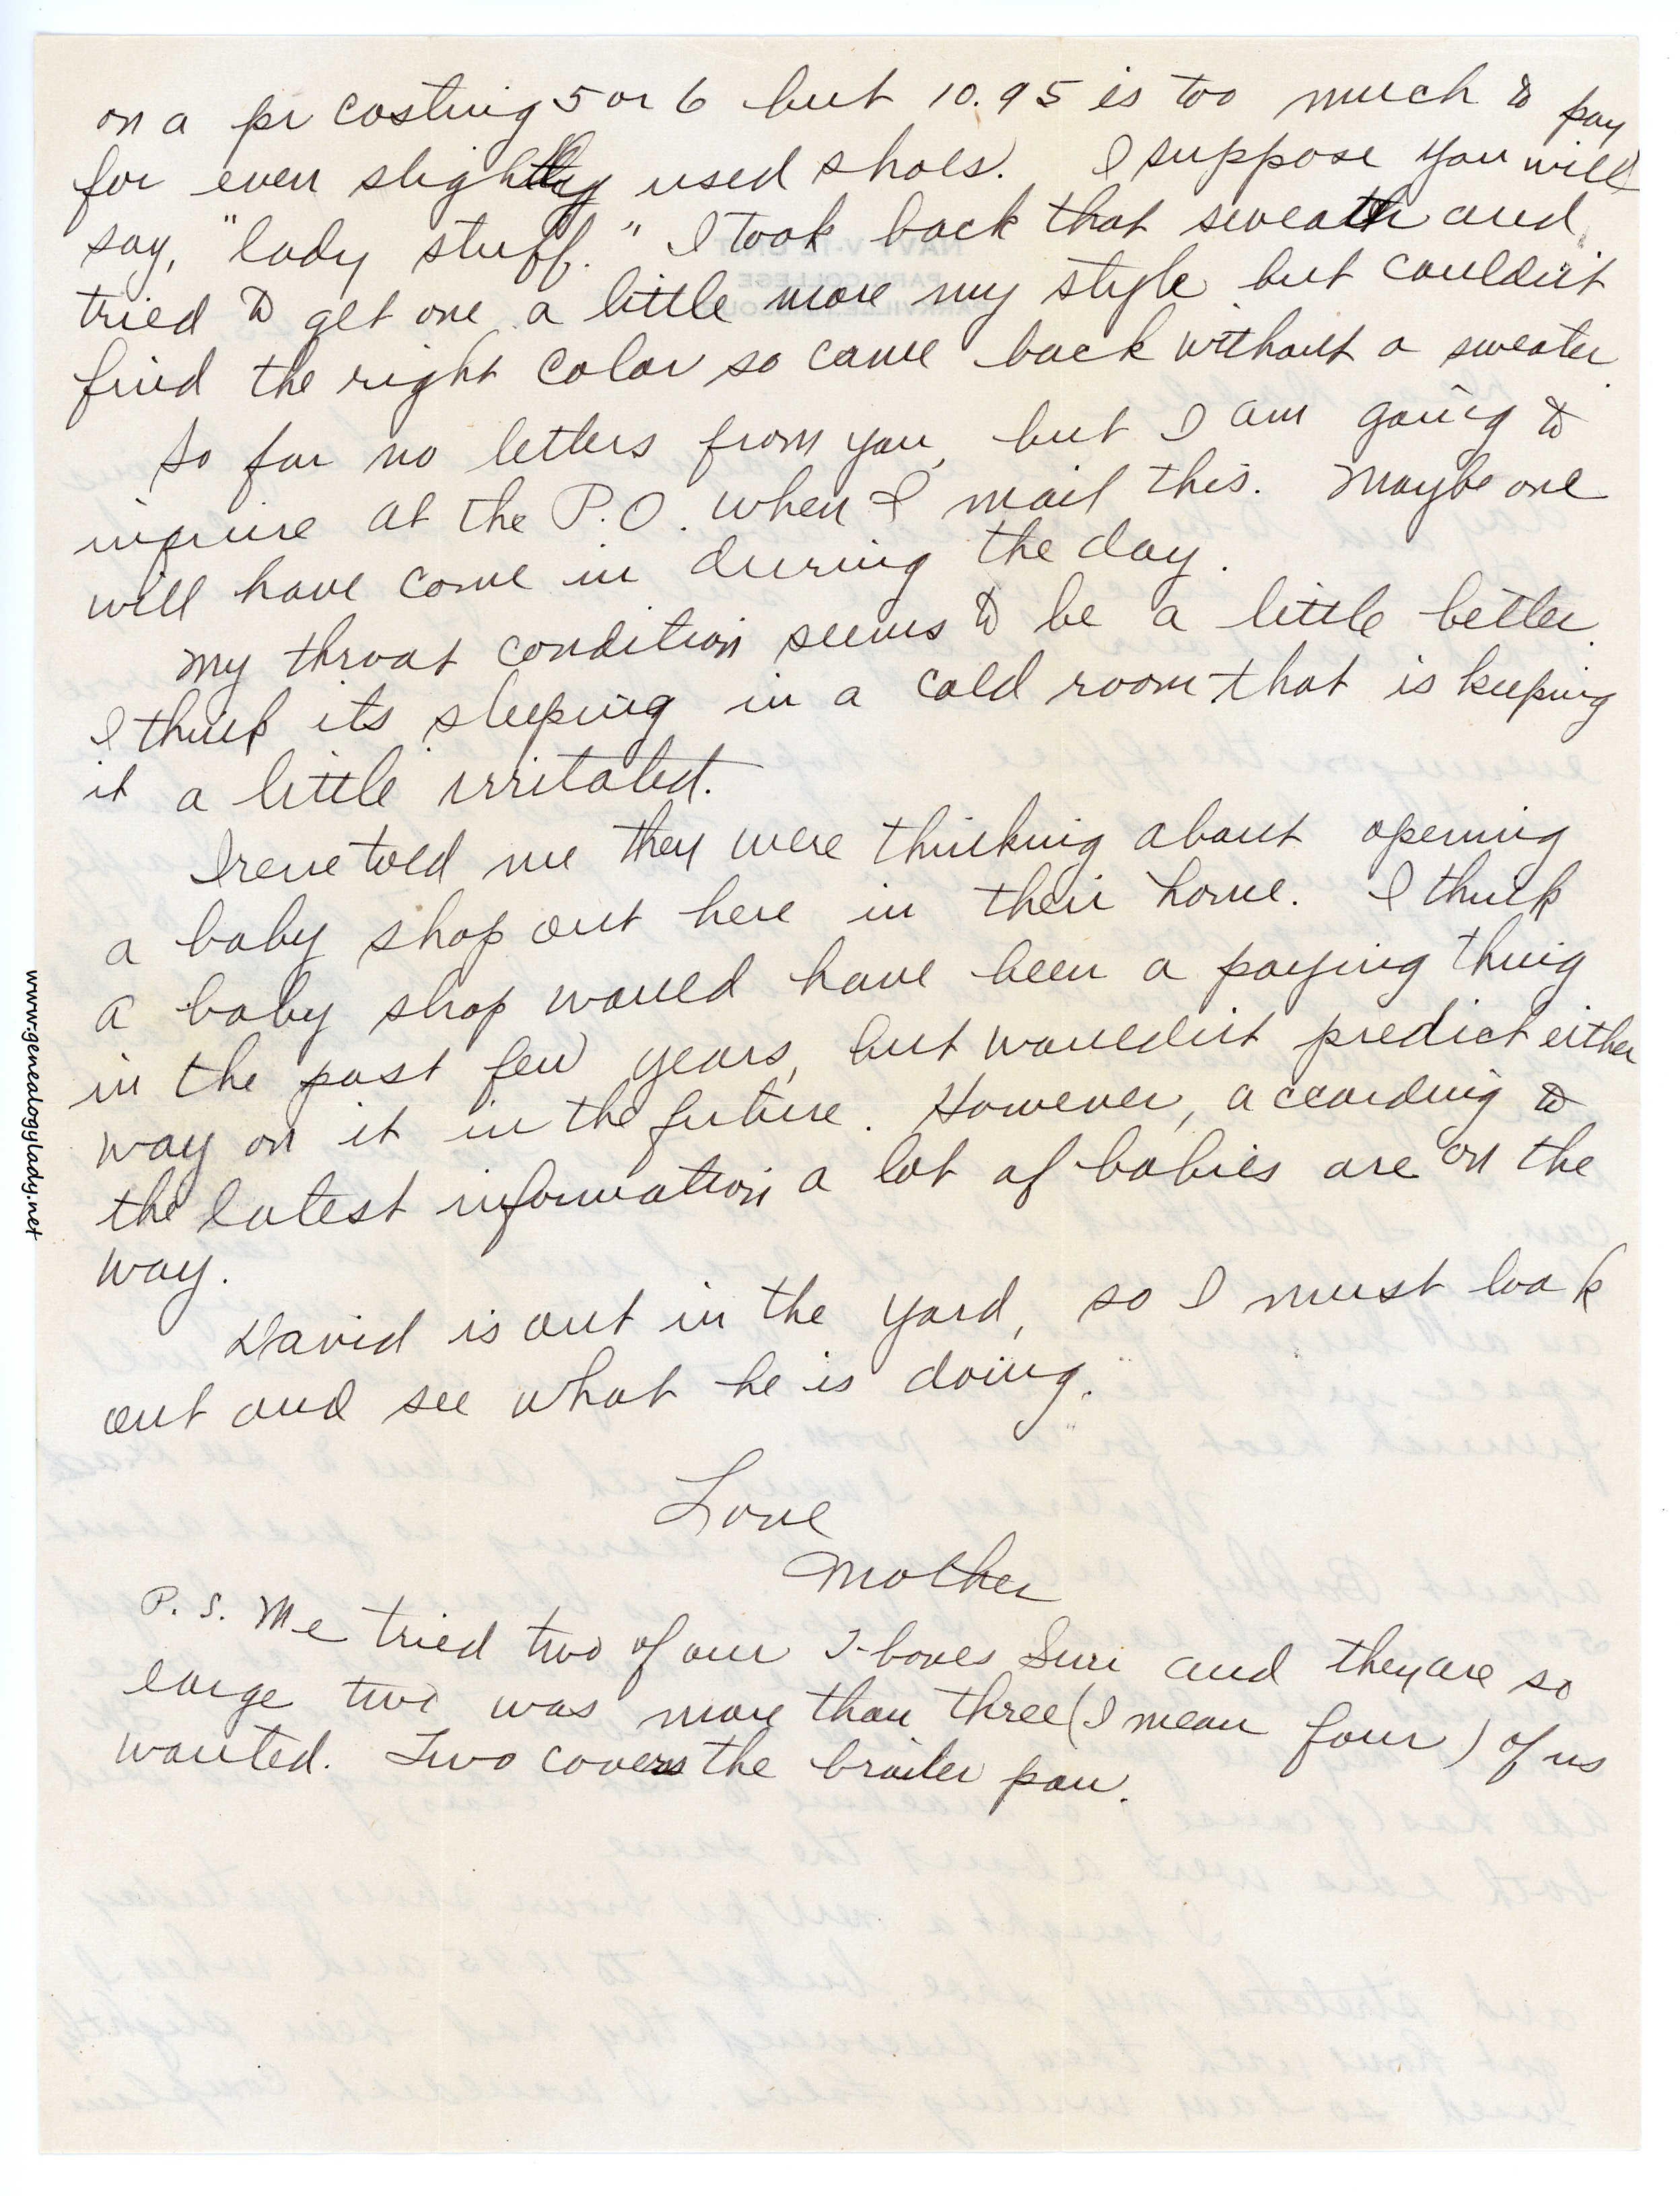 on a pr costing 5 or 6 but 10.95 is too much to pay
for even slightly used shoes. I suppose you will
say, "lady stuff." I took back that sweater and
tried to get one a little more my style but couldn't
find the right color so came back without a sweater.
So far no letters from you, but I am going to
inquire at the P.O. when I mail this. Maybe one
will have come in during the day.
My throat condition seems to be a little better.
I think its sleeping in a cold room that is keeping
it a little irritated.
Irene told me they were thinking about opening
a baby shop out here in their home. I think
a baby shop would have been a paying thing
in the past few years, but wouldn't predict either
way on it in the future. However, according to
the latest information a lot of babies are on the
way.
David is out in the yard, so I must look
out and see what he is doing.
Love
Mother
P.S. We tried two of our T-bones Sun and they are so
large two was more than three (I mean four) of us
wanted. Two covers the broiler pan.
www.genealogylady.net